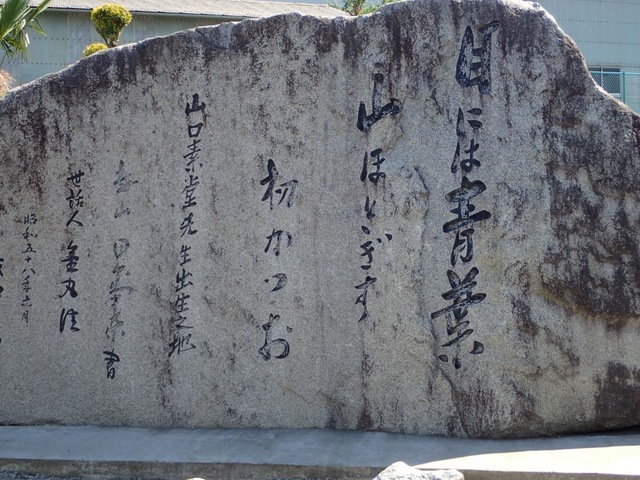 目には青葉
山ほとゝぎす
初かつお
山口素堂先生出生之地
書
世話人 金丸
昭和五十八年六月